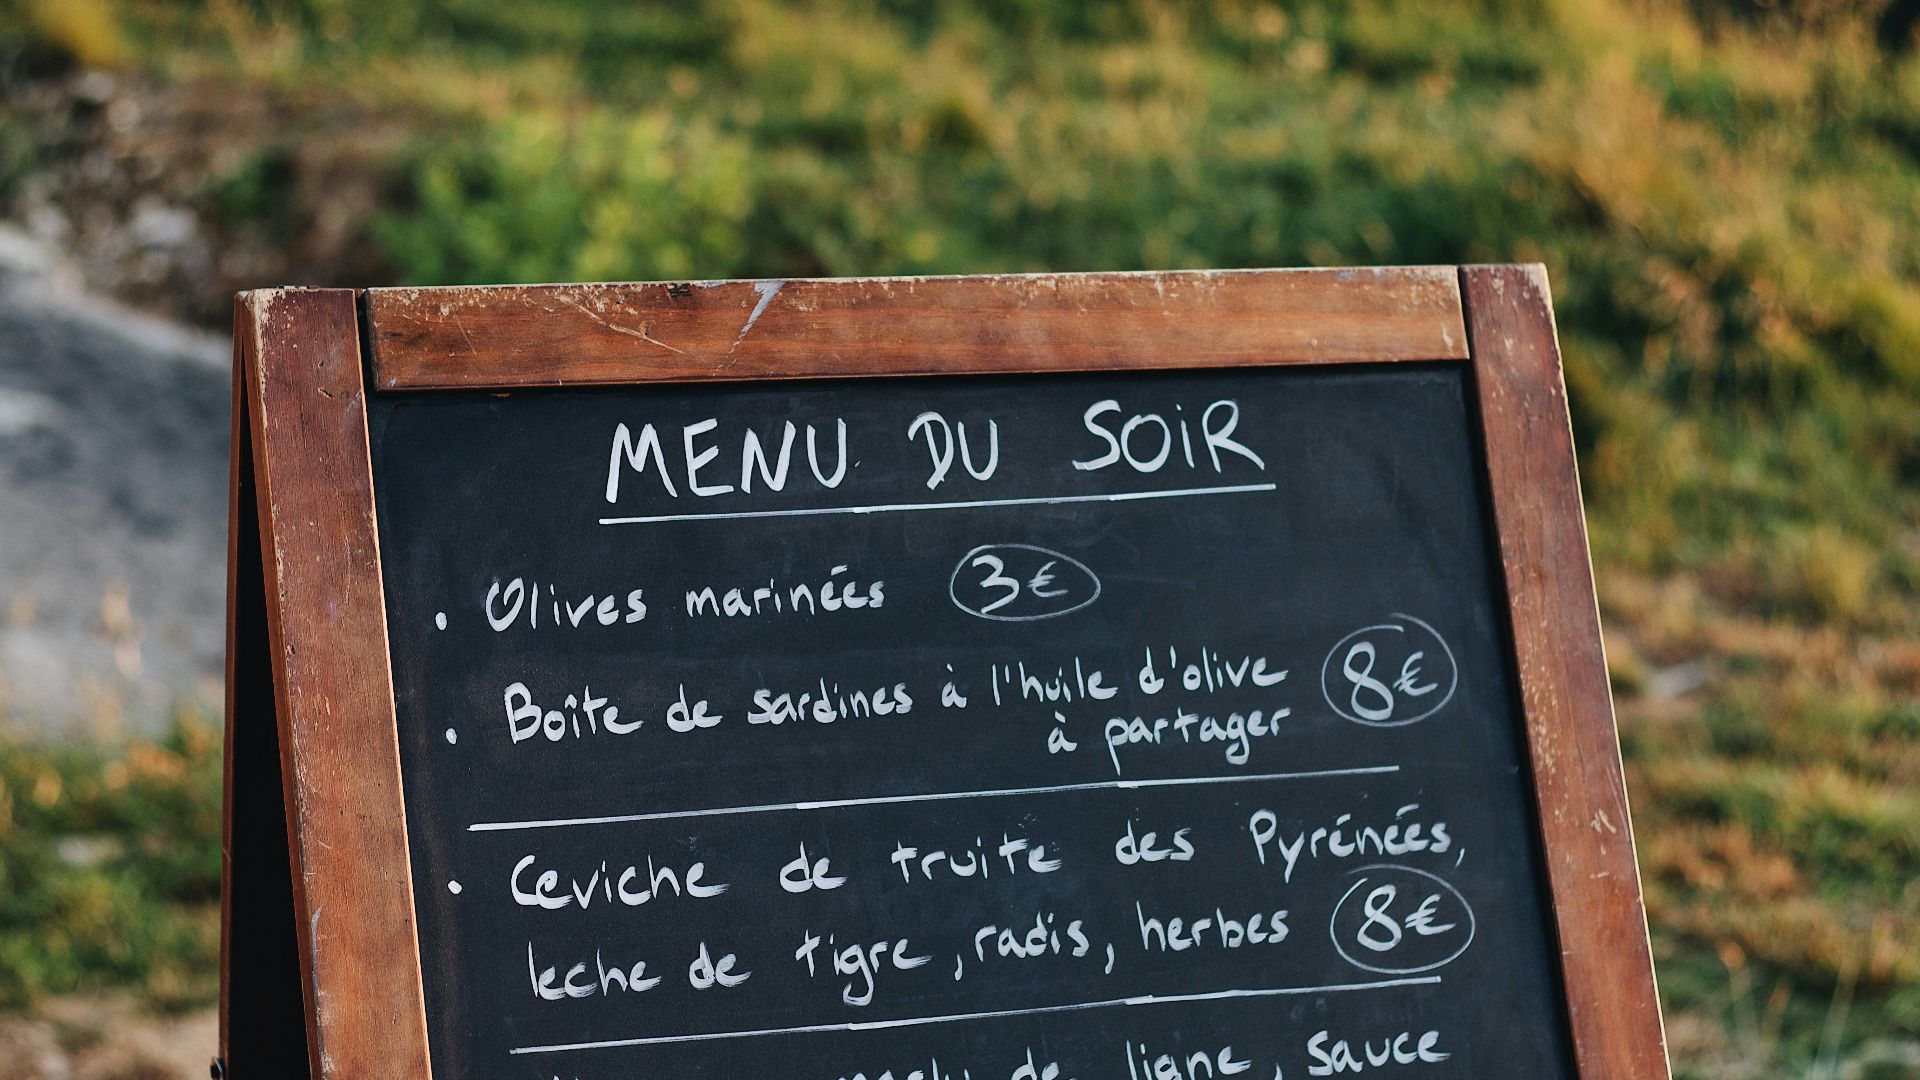 MENU DU SOIR
• Olives marinées 3€
• Boîte de sardines à l'huile d'olive 8€
à partager
• Ceviche de truite des Pyrénées,
leche de tigre, radis, herbes 8€
de ligne, sauce